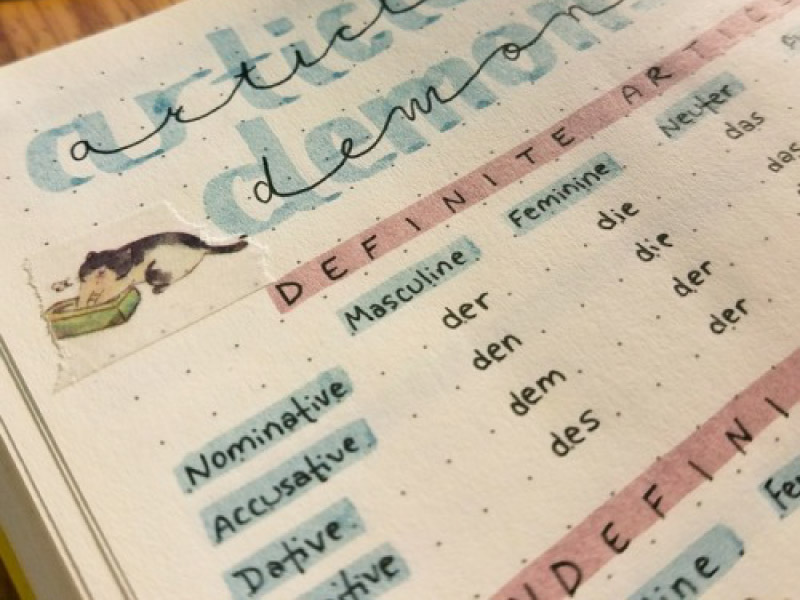 article
demon
DEFINITE ARTICLES
Masculine Feminine Neuter
Nominative der die das
Accusative den die das
Dative dem der
itive des der
NDEFINI
line Fe